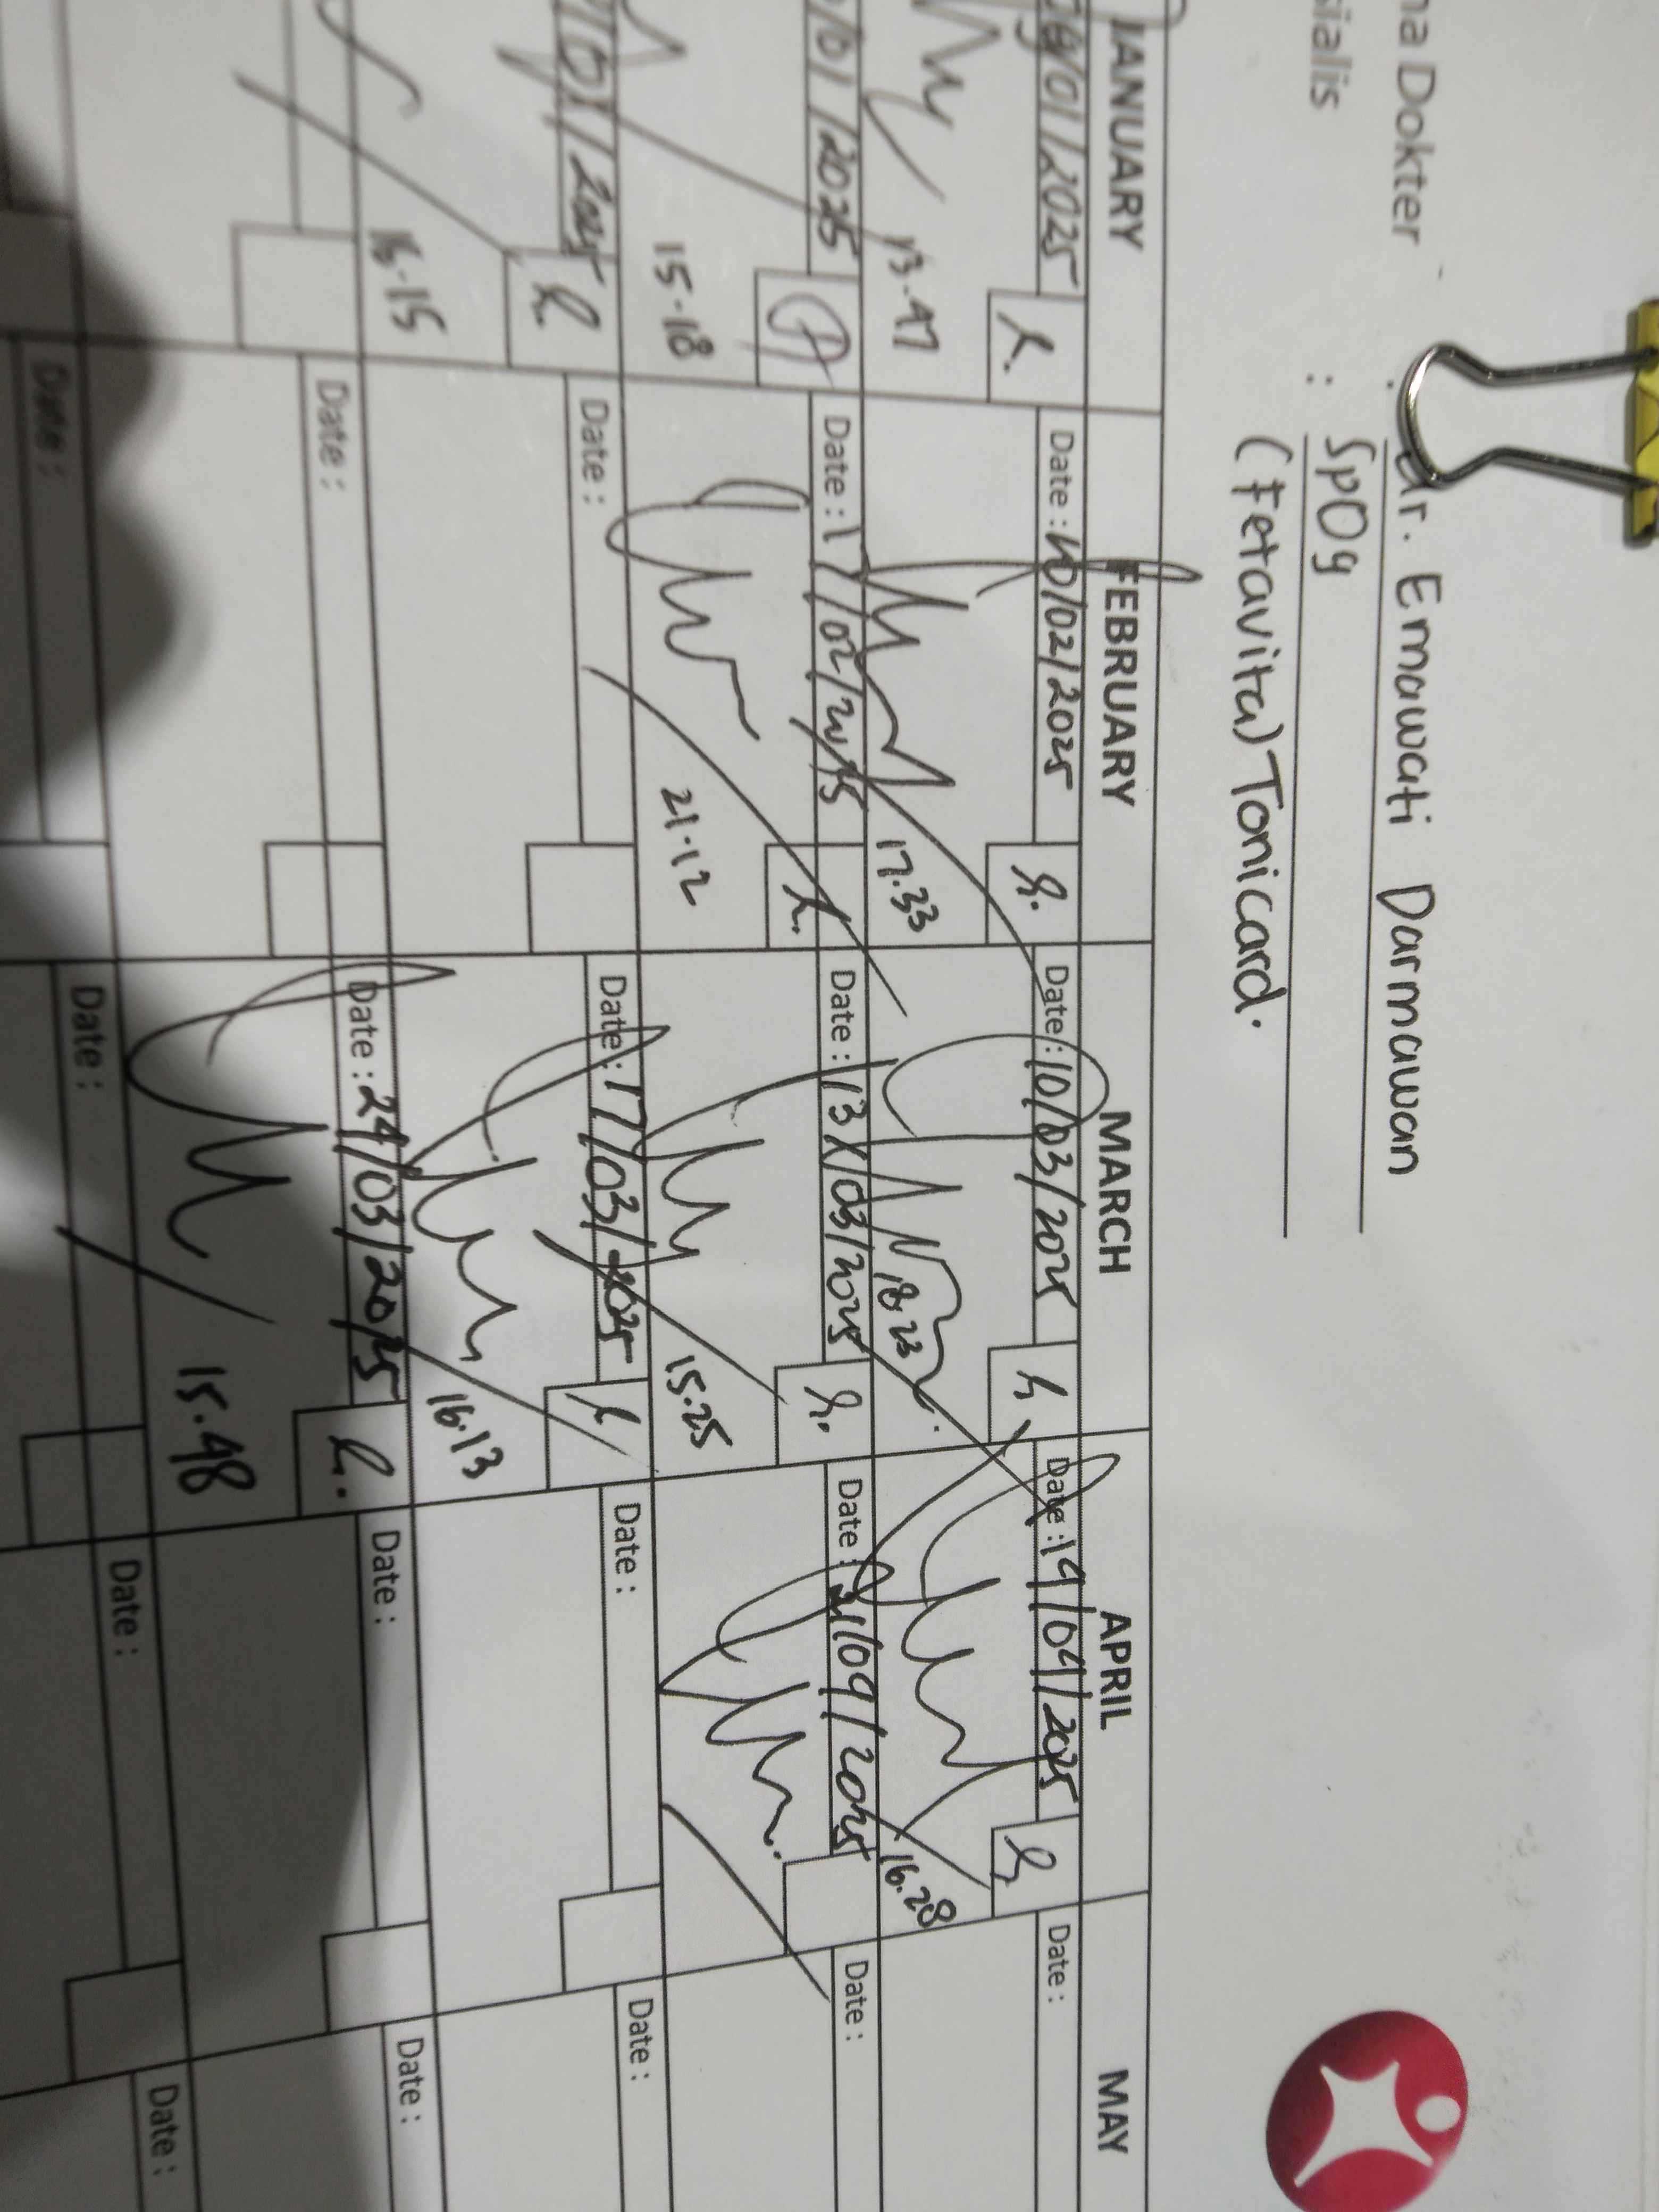 Dokter
: dr. Emawati Darmawan
sialis : SpOg
(Fetavita) Tonicard.
JANUARY FEBRUARY MARCH APRIL MAY
/01/2025 Date : 10/02/2025 Date : 10/03/2025 Date : 14/04/2025 Date :
13.47 17.33 18.23 16.28
/01/2025 Date : 17/02/2025 Date : 13/03/2025 Date : 21/04/2025 Date :
15.18 21.12 15.25
/01/2025 Date : Date : 17/03/2025 Date : Date :
16.15 16.13
Date : Date : 24/03/2025 Date : Date :
15.48
Date : Date : Date : Date :